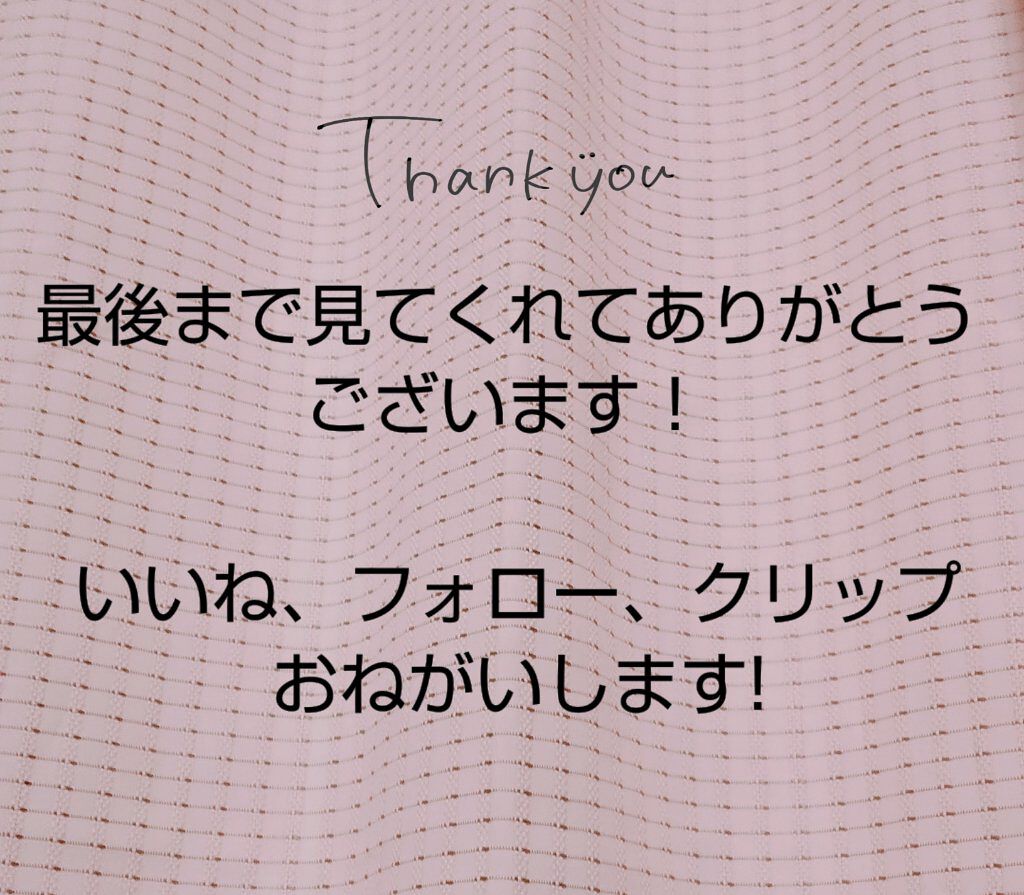 Thank ÿou
最後まで見てくれてありがとう
ございます！
いいね、フォロー、クリップ
おねがいします!